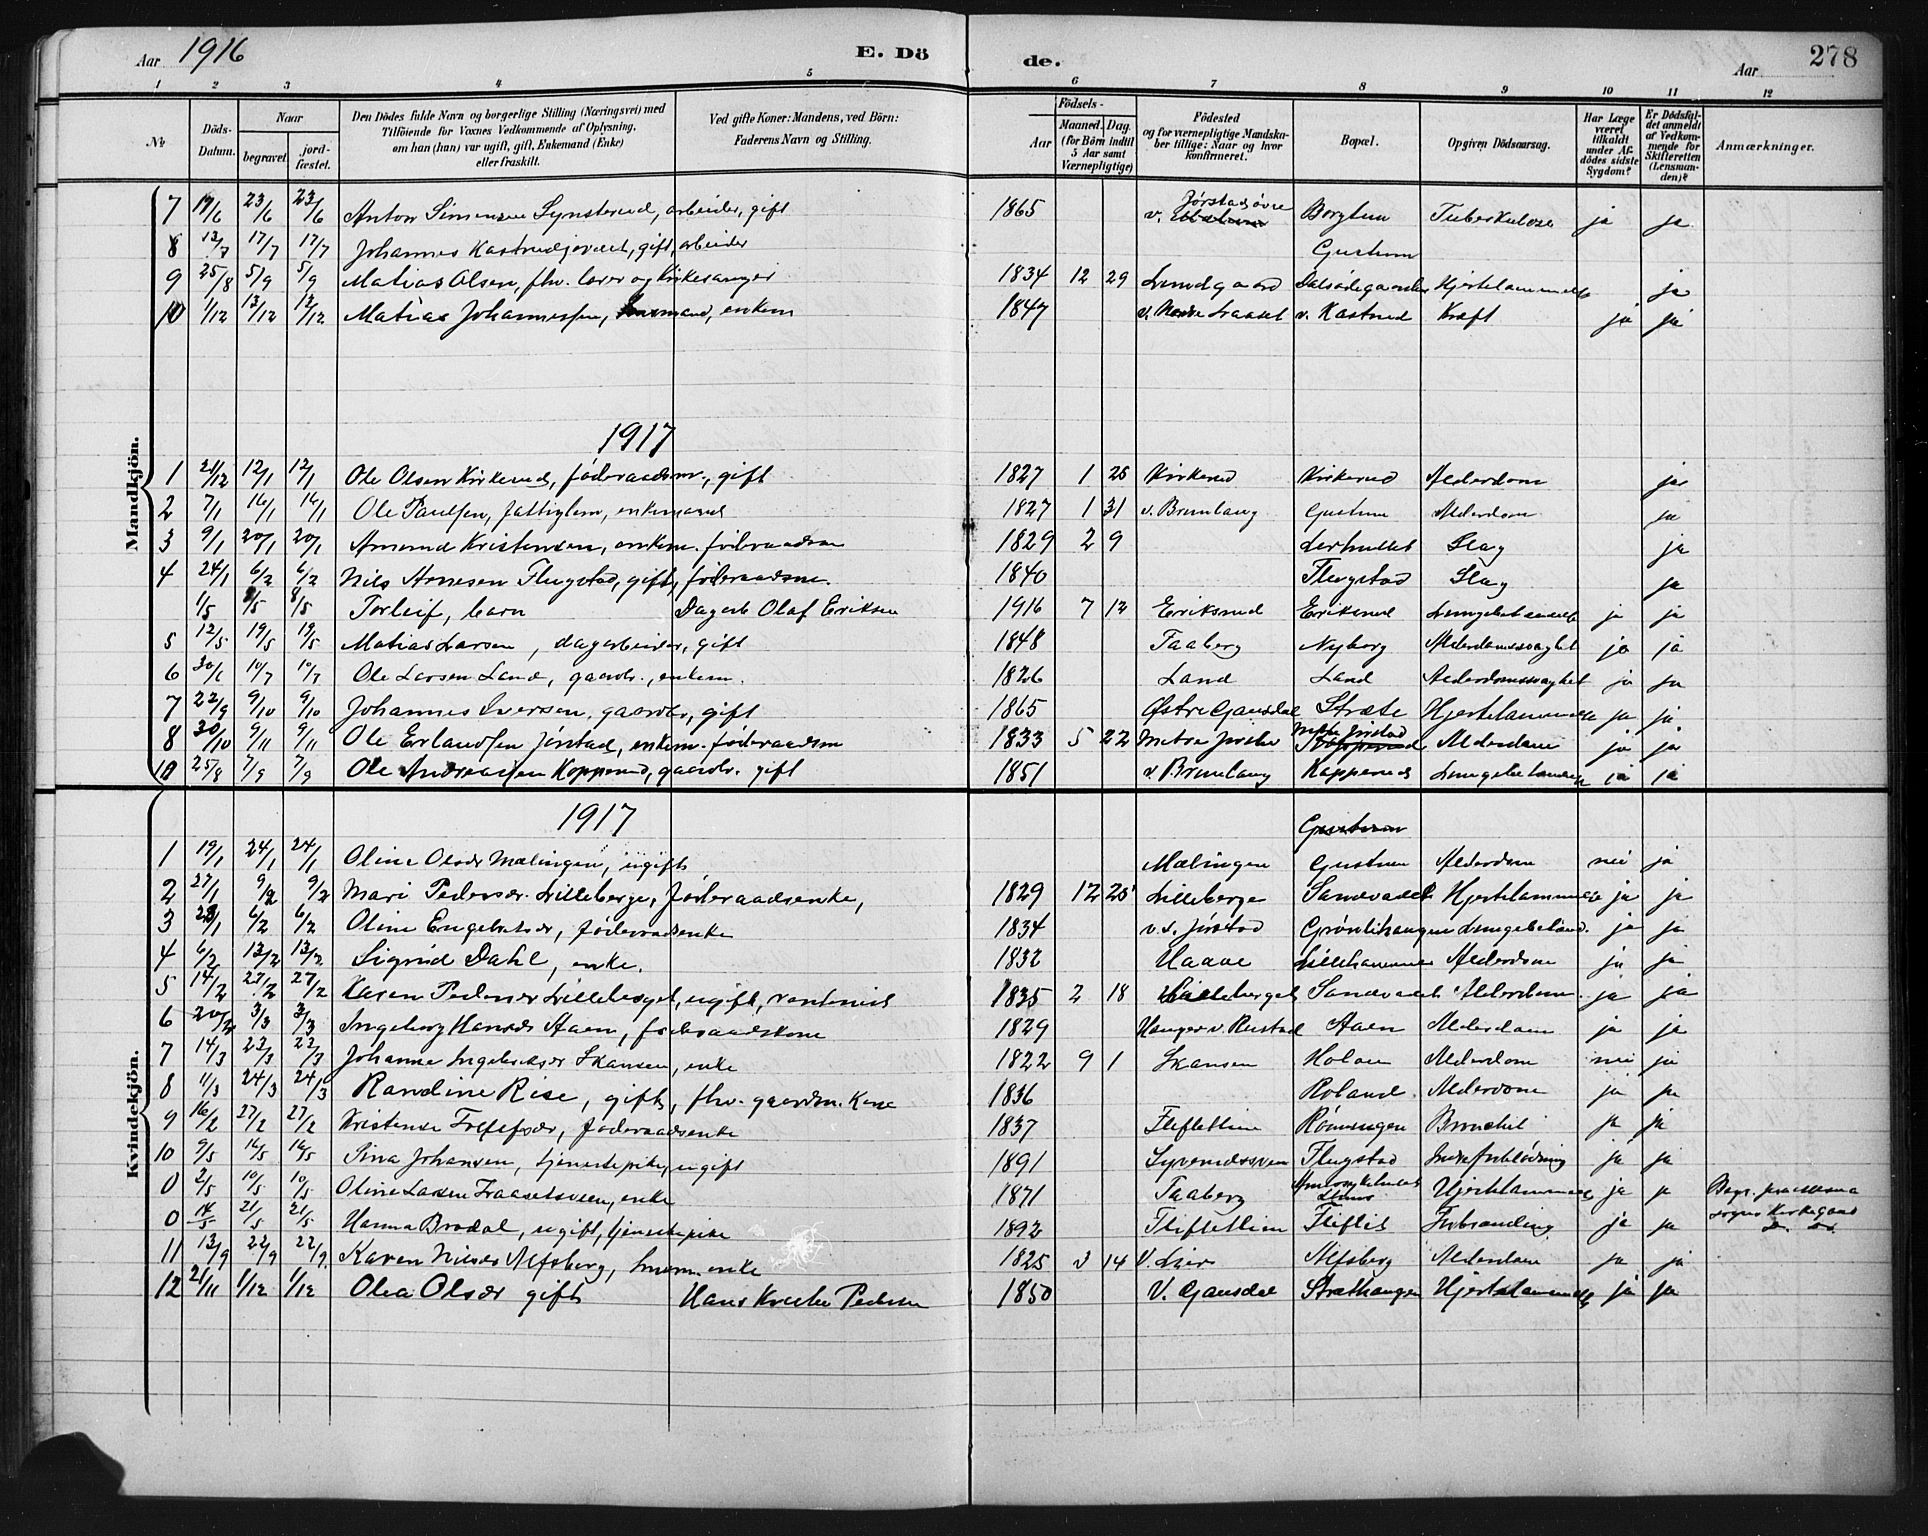 Aar 1916 E. Dö de. Aar 278
1 2 3 4 5 6 7 8 9 10 11 12
No Döds-Datum. Naar begravet. jordfæstet. Den Dödes fulde Navn og borgerlige Stilling (Næringsvei) med Tilföiende for Voxnes Vedkommende af Oplysning, om han (hun) var ugift, gift, Enkemand (Enke) eller fraskilt. Ved gifte Koner: Mandens, ved Börn: Faderens Navn og Stilling. Födsels- Aar Maaned. Dag. (for Börn indtil 5 Aar samt Værnepligtige) Födested og for værnepligtige Mandskaber tillige: Naar og hvor konfirmeret. Bopæl. Opgiven Dödsaarsag. Har Læge været tilkaldt under Afdödes sidste Sygdom? Er Dödsfaldet anmeldt af Vedkommende for Skifteretten (Lensmanden)? Anmærkninger.
Mandkjön.
7 19/6 23/6 23/6 Anton Simensen Lynsterud, arbeider, gift 1865 v. Jørstad søvre Borgtun Tuberkulose ja ja
8 13/7 17/7 17/7 Johannes Kastrudjordet, gift, arbeider Gustum
9 25/8 5/9 5/9 Matias Olsen, fhv. lærer og kirkesanger 1834 12 29 Lundgaard Hjertelammelse ja
10 1/12 13/12 13/12 Matias Johannessen, enkem 1847 v. Nordre Laaset v. Kastrud Kræft ja ja
1917
1 21/12 12/1 12/1 Ole Olsen Kirkerud, föderaadsm., gift 1827 1 25 Kirkerud Kirkerud Alderdom ja
2 7/1 16/1 16/1 Ole Paulsen, fattiglem, enkemand 1827 1 31 v. Brunlaug Gustum Alderdom ja
3 9/1 20/1 20/1 Amund Kristensen, enkem. föderaadsm 1829 2 9 Lerhullet Slag ja
4 24/1 6/2 6/2 Nils Arnesen Flugstad, gift, föderaadsm. 1840 Flugstad Slag ja
1/5 8/5 8/5 Torleif, barn Dagarb Olaf Eriksen 1916 7 12 Eriksrud Eriksrud Lungebetændelse ja ja
5 12/5 19/5 19/5 Matias Larsen, dagarbeider, gift 1848 Faaberg Nyborg Alderdomssvaghet ja ja
6 30/6 10/7 10/7 Ole Larsen Land, gaardbr., enkem. 1826 Land Land Alderdomssvaghet ja ja
7 22/9 9/10 9/10 Johannes Iversen, gaardbr, gift 1865 Østre Gausdal Stræte Hjertelammelse ja ja
8 30/10 9/11 9/11 Ole Erlandsen Jörstad, enkem. föderaadsm 1833 5 22 Metre Jörstad Metre Jörstad Alderdom ja ja
10 25/8 7/9 7/9 Ole Andreassen Kopperud, gaardbr. gift 1851 v. Brunlaug Kopperud Lungebetændelse ja ja
Kvindekjön.
1917
Gustum
1 19/1 24/1 24/1 Oline Olsdr Mælingen, ugift Mælingen Gustum Alderdom nei ja
2 27/1 9/2 9/2 Mari Pedersdr. Lilleberge, föderaadsenke, 1829 12 25 Lilleberge Sandvadet Hjertelammelse ja ja
3 28/1 6/2 6/2 Oline Engebretsdr, föderaadsenke 1834 v. s. Jörstad Grönlihaugen Lungebetænd. ja ja
4 6/2 13/2 13/2 Sigrid Dahl, enke. 1832 Haave Lillehammer Alderdom ja ja
5 14/2 27/2 27/2 Karen Pedersdr Lilleberget, ugift, 1835 2 18 Lilleberget Sandvadet Alderdom ja ja
6 20/2 3/3 3/3 Ingeborg Hansdr Aaen, föderaadskone 1829 Hauger v. Rustad Aaen Alderdom ja ja
7 14/3 23/3 23/3 Johanne Ingebretsdr Skansen, enke 1822 9 1 Skansen Holen Alderdom nei ja
8 11/3 24/3 24/3 Randine Rise, gift, fhv. gaardm. kone 1836 Roland Alderdom ja ja
9 16/2 27/2 27/2 Kristense föderaadsenke 1837 Fliflettim Rönningen Bronchit ja ja
10 9/5 16/5 16/5 Sina Johansen, tjenestepike, ugift 1891 Flugstad Indre forblödning ja ja
0 2/5 10/5 10/5 Oline Larsen enke 1871 Faaberg Hjertelammelse ja ja
0 14/5 21/5 21/5 Hanna Brodal, ugift, tjenestepike 1892 Fliflet Forbrænding ja ja
11 13/9 22/9 22/9 Karen Nilsdr Alfsberg, enke 1825 3 14 V. Lier Alfsberg Alderdom ja ja
12 21/11 1/12 1/12 Olea Olsdr gift Hans Kristian Pedersen 1850 V. Gausdal Stræthaugen Hjertelammelse ja ja